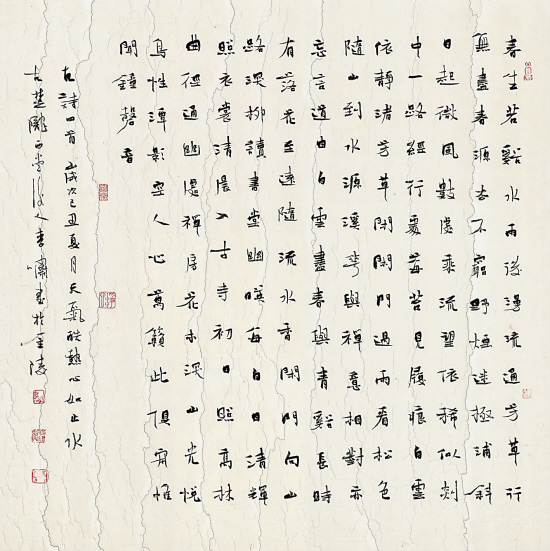 春生若谿水雨後漫流通芳草行
無盡春源去不窮野煙迷極浦斜
日起微風數處乘流望依稀似剡
中一路經行處莓苔見履痕白雲
依靜渚芳草閉閑門過雨看松色
隨山到水源溪華與禪意相對亦
忘言道由白雲盡春與青谿長時
有落花至遠隨流水香閑門向山
路深柳讀書堂幽暎每白日清輝
照衣裳清晨入古寺初日照高林
曲徑通幽處禪房花木深山光悅
鳥性潭影空人心萬籟此俱寂惟
聞鐘磬音
古詩四首歲次己丑夏月天氣酷熱心如止水
古楚隴西堂後人李嘯書於金陵